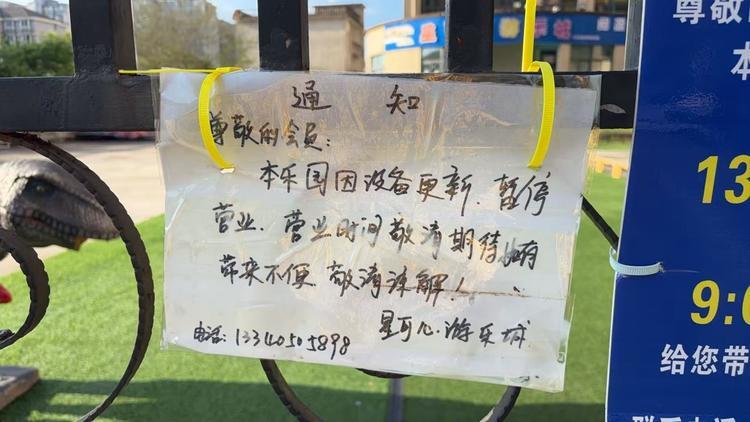 通知
尊敬的会员：
本乐园因设备更新、暂停
营业、营业时间敬请期待如有
带来不便 敬请谅解！
星可儿·游乐城
电话：13340505898
尊敬
本
13
9:0
给您带